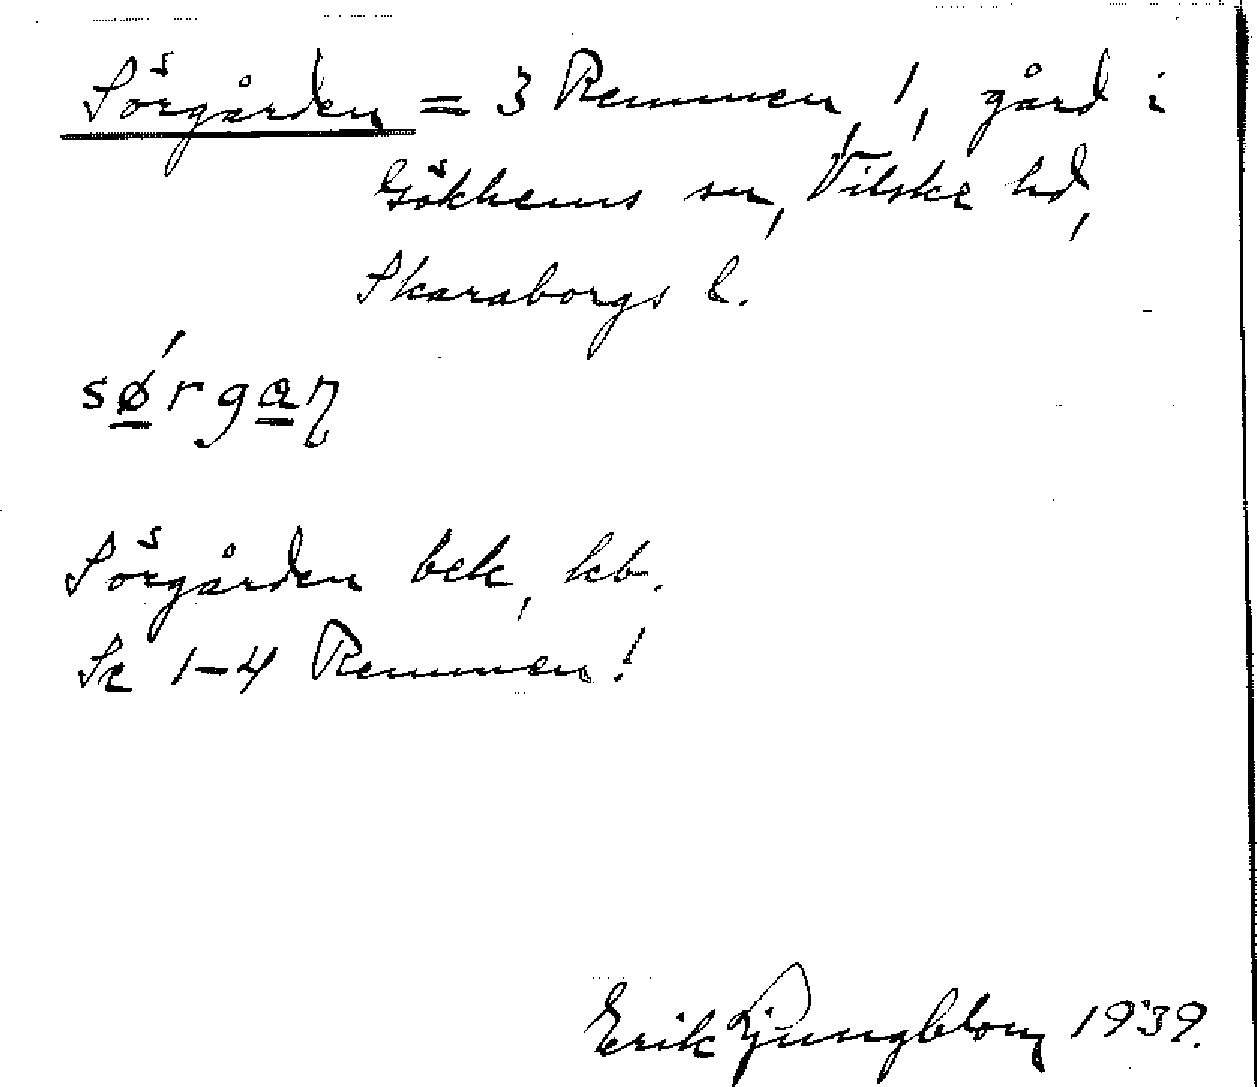 Sörgården = 3 Remmen !, gård i
Gökhems sn, Vilske hd,
Skaraborgs l.
sǿrgaɳ
Sörgården bek, kb.
Se 1-4 Remmen!
Erik Ljungblom 1939.